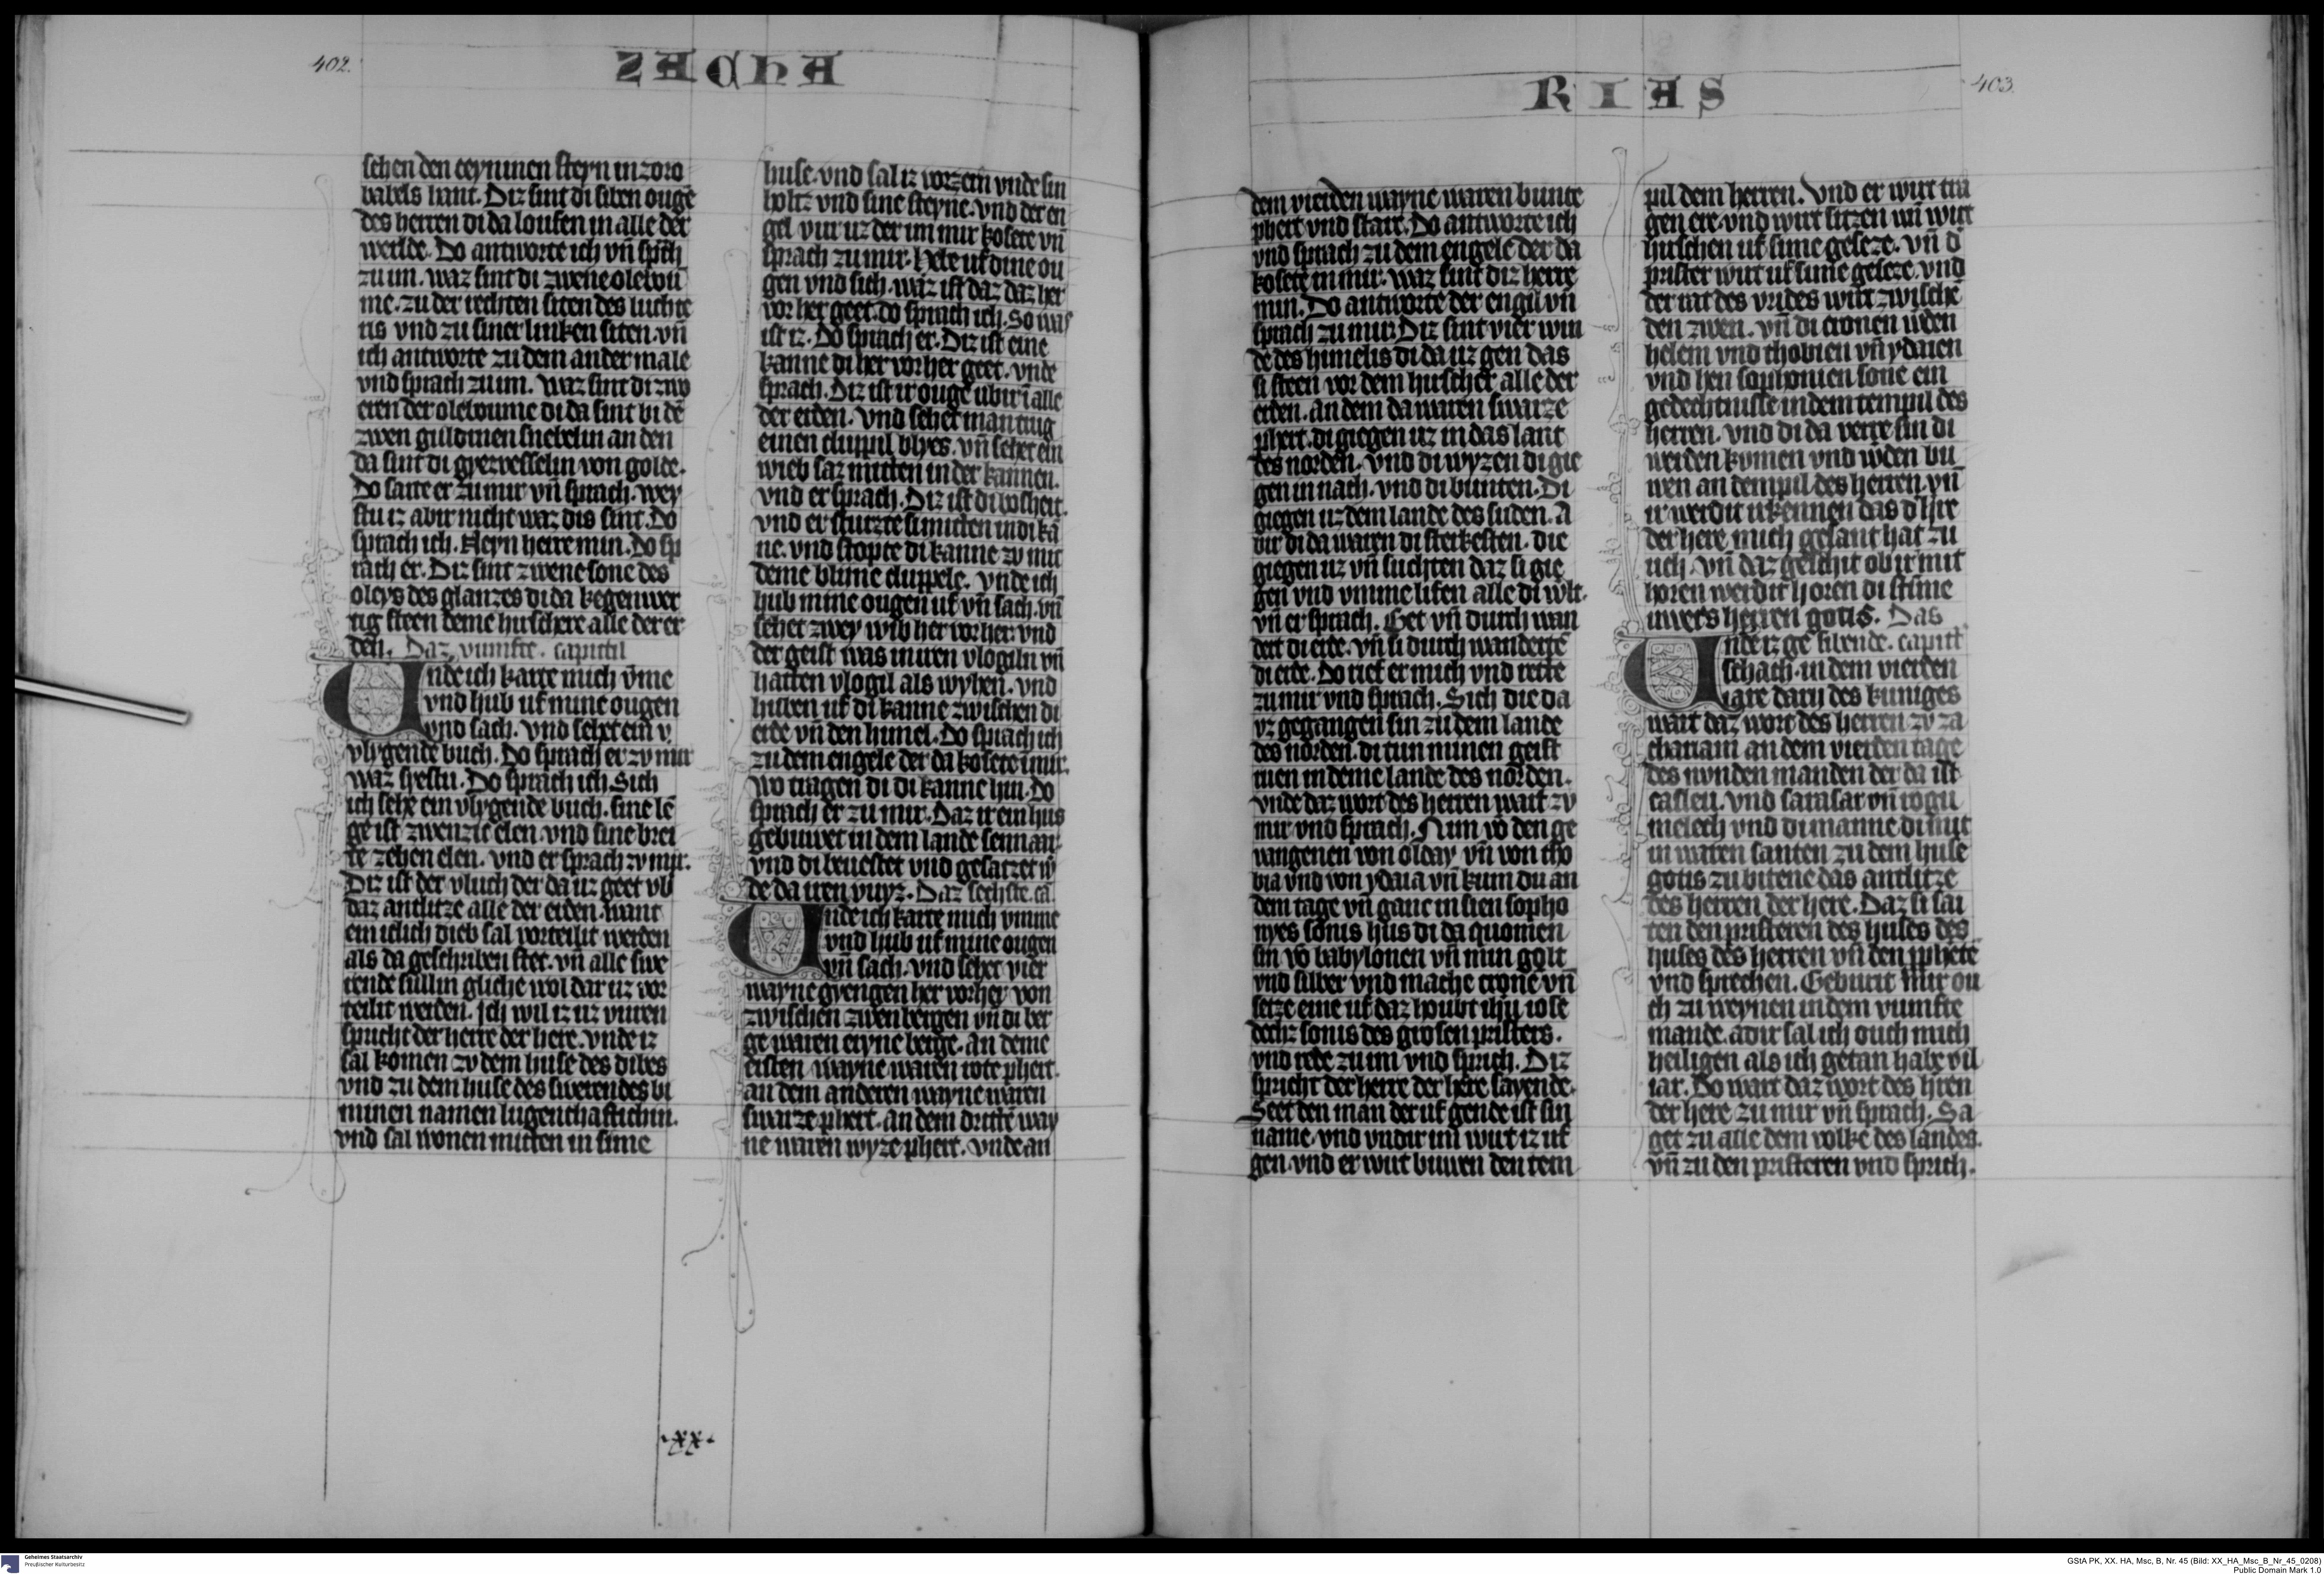 402.
ZACHA
schen den ceyninen steyn in zoro
babels hant. Diz sint di siben ougē
des herren di da loufen in alle der
werlde. Do antworte ich vn̄ sp̄ch
zu im. waz sint di zwene olebou
me. zu der rechten siten des luchte
ris vnd zu siner linken siten. vn̄
ich antworte zu dem ander male
vnd sprach zu im. waz sint di zwo
eren der oleboume di da sint bi dē
zwen guldinen snebelin an den
da sint di gyzvesselin von golde.
Do sarte er zu mir vn̄ sprach. wey
stu iz abir nicht waz dis sint. Do
sprach ich. Neyn herre min. Do sp
rach er. Diz sint zwene sone des
oleys des glanzes di da kegenwer
tig steen deme hirschere alle der er
den. Daz vumfte. capittil
Unde ich karte mich v̄me
vnd hub uf mine ougen
vnd sach. vnd sehet ein v
vlygende buch. Do sprach er zv mir
waz syestu. Do sprach ich. Sich
ich sehe ein vlygende buch. sine lē
ge ist zwenzic elen. vnd sine brei
te zehen elen. vnd er sprach zv mir.
Diz ist der vluch der da uz geet vb
daz antlitze alle der erden. want
ein iclich dieb sal vorteilit werden
als da geschriben stet. vn̄ alle swe
rende sullin gliche wol dar uz vor
teilit werden. Ich wil iz uz vuren
spricht der herre der here. vnde iz
sal komen zv dem huse des dibes
vnd zu dem huse des swerendes bi
minen namen lugenthaftichin.
vnd sal wonen mitten in sime
huse. vnd sal iz vorzern vnde sin
holtz vnd sine steyne. vnd der en
gel vur uz der im mir kosete vn̄
sprach zu mir. Hebe uf dine ou
gen vnd sich. waz ist daz daz her
vor her geet. do sprach ich. So was
ist iz. Do sprach er. Diz ist eine
kanne di her vor her geet. vnde
sprach. Diz ist ir ouge ubir ī alle
der erden. Vnd sehet man trug
einen cluppil blyes. vn̄ sehet ein
wieb saz mitten in der kannen.
vnd er sprach. Diz ist di bosheit.
vnd er sturzte si mitten in di kā
ne. vnd stopte di kanne zv mit
deme blyine cluppele. Vnde ich
hub mine ougen uf vn̄ sach. vn̄
sehet zwey wib her vor her. vnd
der geist was in iren vlogiln vn̄
hatten vlogil als wyben. vnd
huben uf di kanne zwischen di
erde vn̄ den himel. Do sprach ich
zu dem engele der da kosete ī mir.
wo tragen di di kanne hin. Do
sprach er zu mir. Daz ir ein hus
gebuwet in dem lande sennaar.
vnd di bevestet vnd gesatzet w̄
de da iren vuyz. Daz sechste. ca.
Unde ich karte mich vmme
vnd hub uf mine ougen
vn̄ sach. vnd sehet vier
wayne gyengen her vor her von
zwischen zwen bergen vn̄ di ber
ge waren eryne berge. an deme
ersten wayne waren rote phert.
an dem anderen wayne waren
swarze phert. an dem drittē way
ne waren wyze phert. vnde an
·xx·
RIAS
403.
dem vierden wayne waren bunte
phert vnd starc. Do antworte ich
vnd sprach zu dem engele der da
kosete in mir. waz sint diz herre
min. Do antworte der engil vn̄
sprach zu mir. Diz sint vier win
de des himelis di da uz gen das
si steen vor dem hirscher alle der
erden. an dem da waren swarze
phert. di giegen uz in das lant
des norden. vnd di wyzen di gie
gen in nach. vnd di bunten. Di
giegen uz dem lande des suden. A
bir di da waren di sterkesten. die
giegen uz vn̄ suchten daz si gie
gen vnd vmme lifen alle di w̄lt.
vn̄ er sprach. Get vn̄ durch wan
dert di erde. vn̄ si durch wanderte
di erde. Do rief er mich vnd rette
zu mir vnd sprach. Sich die da
vz gegangen sin zu dem lande
des norden. di tun minen geist
ruen in deme lande des norden.
Vnde daz wort des herren wart zv
mir vnd sprach. Nim vō den ge
vangenen von olday vn̄ von tho
bia vnd von ydaia vn̄ kum du an
dem tage vn̄ ganc in sien sopho
nyes sonis hus di da quomen
sin vō babylonen vn̄ nim golt
vnd silber vnd mache crone vn̄
setze eine uf daz houbt ihū iose
dechz sonis des grosen pristers.
vnd rede zu im vnd sprich. Diz
spricht der herre der here sayende.
Seet den man der uf gende ist sin
name. vnd vndir im wirt iz uf
gen. vnd er wirt buwen den tem
pil dem herren. Vnd er wirt tra
gen ere. vnd wirt sitzen vn̄ wirt
hirschen uf sime geseze. vn̄ d'
prister wirt uf sime geseze. vnd
der rat des vrides wirt zwische
den zwen. vn̄ di cronen w̄den
helem vnd thobien vn̄ ydaien
vnd hen sophonien sone ein
gedechtnisse in dem tempil des
herren. vnd di da verre sin di
werden komen vnd w̄den bu
wen an dem pil des herren. vn̄
ir werdit irkennen das d' h're
der here mich gesant hat zu
uch. vn̄ daz geschit ob ir mit
horen werdit horen di stīme
uwers herren gotis. Das
Unde iz ge sibende. capitt'
schach. in dem vierden
iare dary des kuniges
wart daz wort des herren zv za
chariam an dem vierden tage
des nvnden manden der da ist
casleu. vnd sarasar vn̄ rogu
melech vnd di manne di mit
in waren santen zu dem huse
gotis zu bitene das antlitze
des herren der here. Daz si sai
ten den pristeren des huses des
huses des herren vn̄ den ꝓphete
vnd sprechen. Geburit mir ou
ch zu weynen in dem vumfte
mande. adir sal ich ouch mich
heiligen als ich getan habe vil
iar. Do wart daz wort des h'ren
der here zu mir vn̄ sprach. Sa
get zu alle dem volke des landes.
vn̄ zu den pristeren vnd sprich.
Geheimes Staatsarchiv
Preußischer Kulturbesitz
GStA PK, XX. HA, Msc, B, Nr. 45 (Bild: XX_HA_Msc_B_Nr_45_0208)
Public Domain Mark 1.0